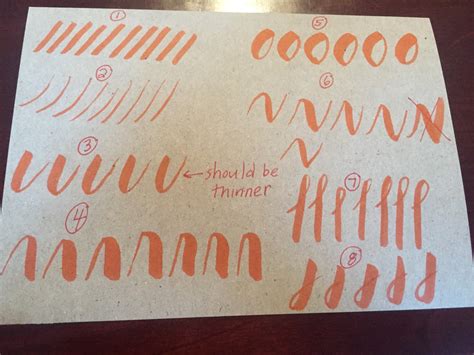 1
2
3
← should be
thinner
4
5
6
7
8